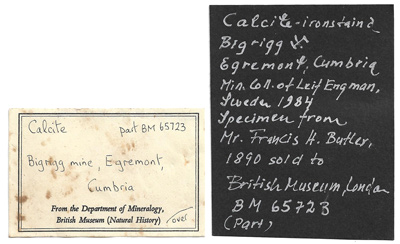 Calcite part BM 65723
Bigrigg mine, Egremont,
Cumbria
From the Department of Mineralogy,
British Museum (Natural History)
over
Calcite-ironstained
Bigrigg
Egremont, Cumbria
Min. Coll. of Leif Engman,
Sweden 1984
Specimen from
Mr. Francis H. Butler,
1890 sold to
British Museum, London
BM 65723
(Part)